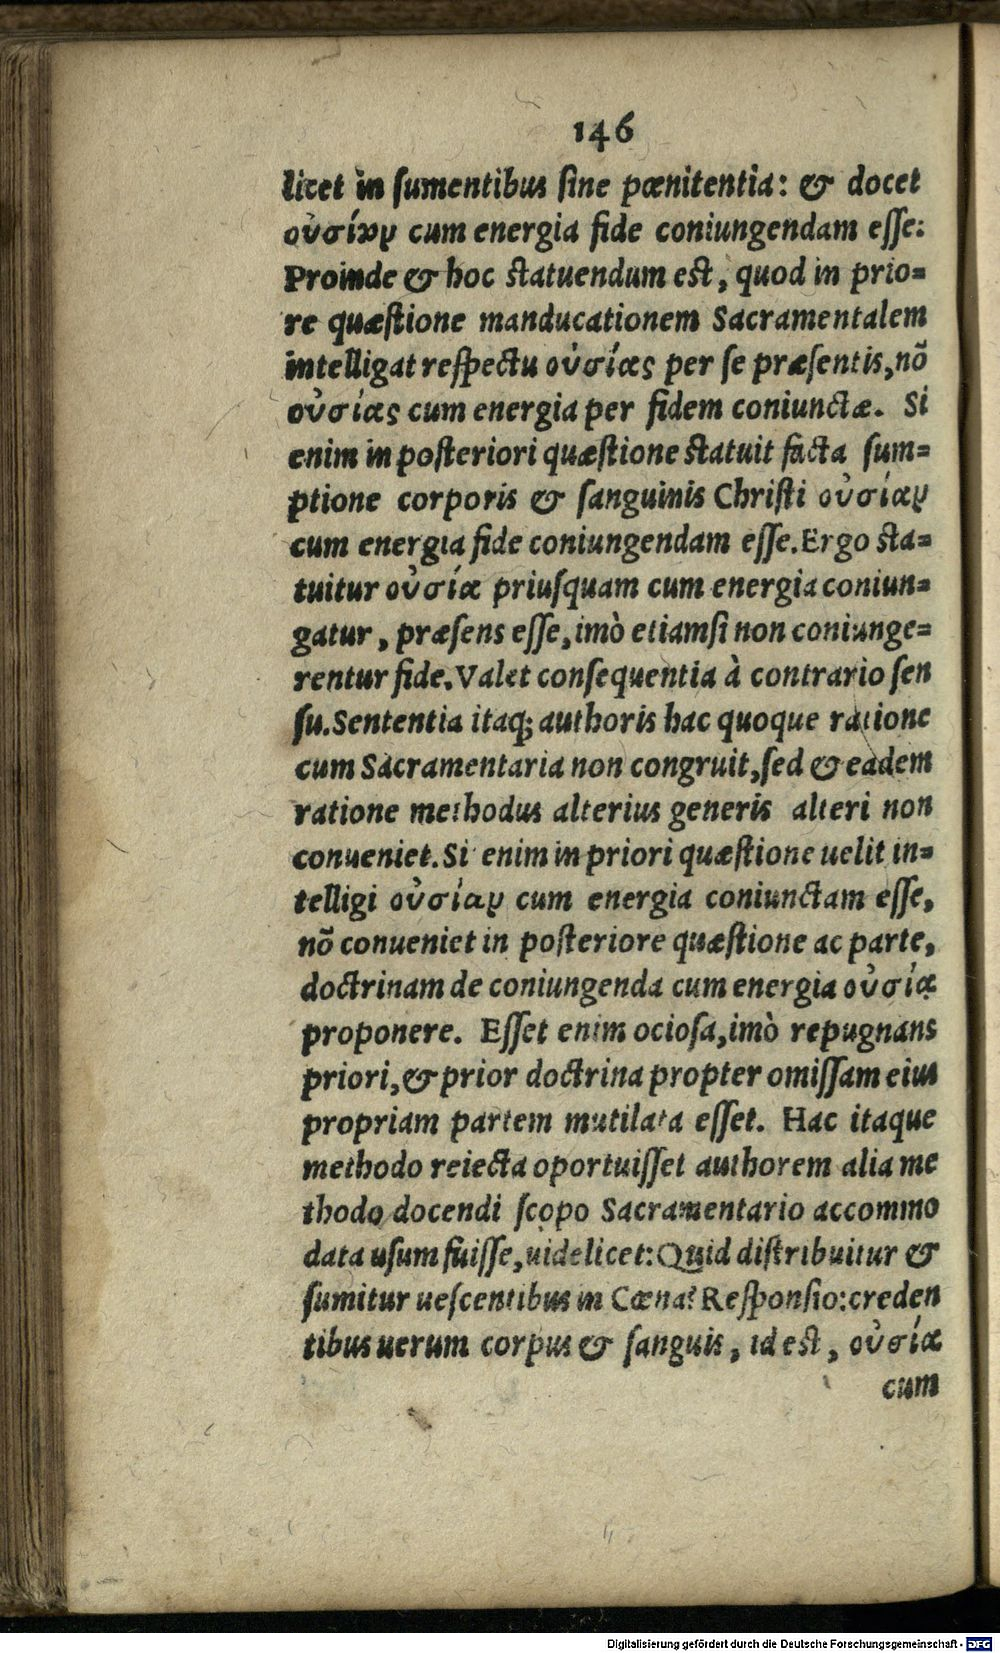 146
licet in ſumentibus ſine pœnitentia: & docet
οὐσίαν cum energia fide coniungendam eſſe:
Proinde & hoc ſtatuendum eſt, quod in prio=
re quæſtione manducationem Sacramentalem
intelligat reſpectu οὐσίας per ſe præſentis, nõ
οὐσίας cum energia per fidem coniunctæ. Si
enim in poſteriori quæſtione ſtatuit facta ſum=
ptione corporis & ſanguinis Chriſti οὐσίαν
cum energia fide coniungendam eſſe. Ergo ſta=
tuitur οὐσία priuſquam cum energia coniun=
gatur, præſens eſſe, imò etiamſi non coniunge=
rentur fide. Valet conſequentia à contrario ſen
ſu. Sententia itaq; authoris hac quoque ratione
cum Sacramentaria non congruit, ſed & eadem
ratione methodus alterius generis alteri non
conueniet. Si enim in priori quæſtione uelit in=
telligi οὐσίαν cum energia coniunctam eſſe,
nõ conueniet in poſteriore quæſtione ac parte,
doctrinam de coniungenda cum energia οὐσία
proponere. Eſſet enim ocioſa, imò repugnans
priori, & prior doctrina propter omiſſam eius
propriam partem mutilata eſſet. Hac itaque
methodo reiecta oportuiſſet authorem alia me
thodo docendi ſcopo Sacramentario accommo
data uſum fuiſſe, uidelicet: Quid diſtribuitur &
ſumitur ueſcentibus in Cœna? Reſponſio: creden
tibus uerum corpus & ſanguis, id eſt, οὐσία
cum
Digitalisierung gefördert durch die Deutsche Forschungsgemeinschaft - DFG